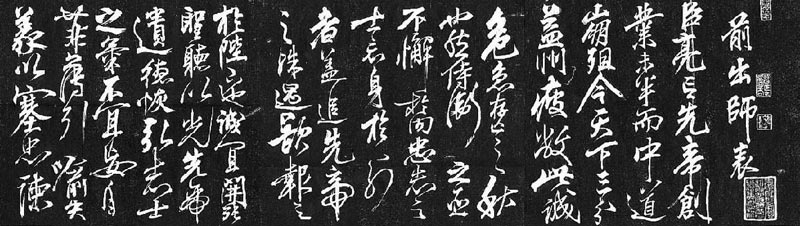 前出師表
臣亮言先帝創
業未半而中道
崩殂今天下三分
益州疲敝此誠
危急存亡之秋
也然侍衛之臣
不懈於內忠志之
士忘身於外
者蓋追先帝
之殊遇欲報之
於陛下誠宜開張
聖聽以光先帝
遺德恢弘志士
之氣不宜妄自
菲薄引喻失
義以塞忠諫